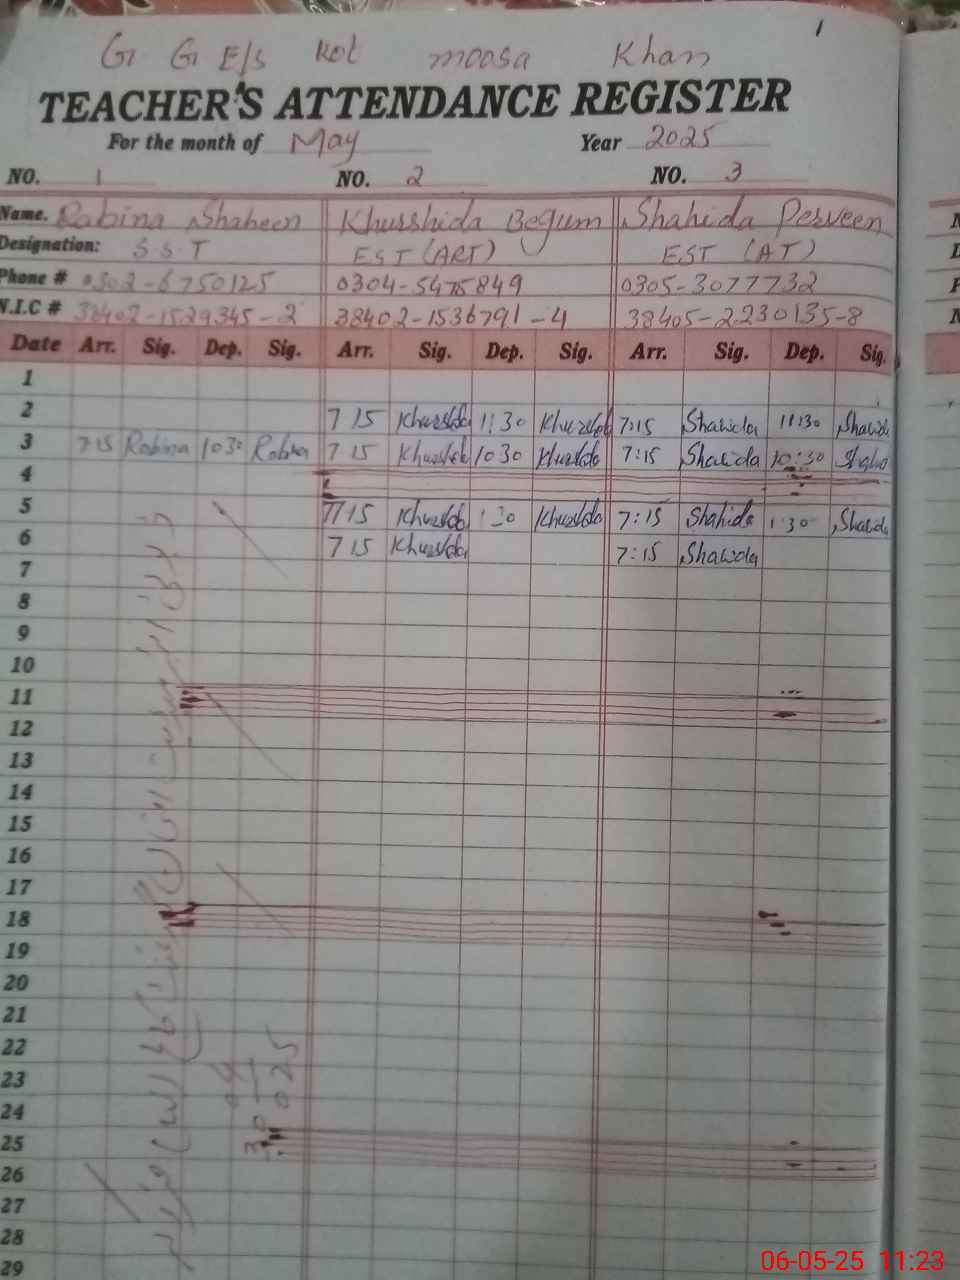 1
G G E/S Kot moosa Khan
TEACHER'S ATTENDANCE REGISTER
For the month of May Year 2025
NO. 1 NO. 2 NO. 3
Name. Rabina Shaheen Khurshida Begum Shahida Perveen
Designation: S.S.T EST (ART) EST (AT)
Phone # 0302-6750125 0304-5475849 0305-3077732
N.I.C # 38402-1529345-2 38402-1536791-4 38405-2230135-8
Date Arr. Sig. Dep. Sig. Arr. Sig. Dep. Sig. Arr. Sig. Dep. Sig.
1
2 7 15 Khurshida 11:30 Khurshida 7:15 Shahida 11:30 Shahida
3 7:15 Robina 10 30 Robina 7 15 Khurshida 10 30 Khurshida 7:15 Shahida 10:30 Shahida
4
5 7 15 Khurshida 1 30 Khurshida 7:15 Shahida 1 30 Shahida
6 7 15 Khurshida 7:15 Shahida
7
8
9
10
11
12
13
14
15
16
17
18
19
20
21
22
23
24
25
26
27
28
29
30 04 025
06-05-25 11:23